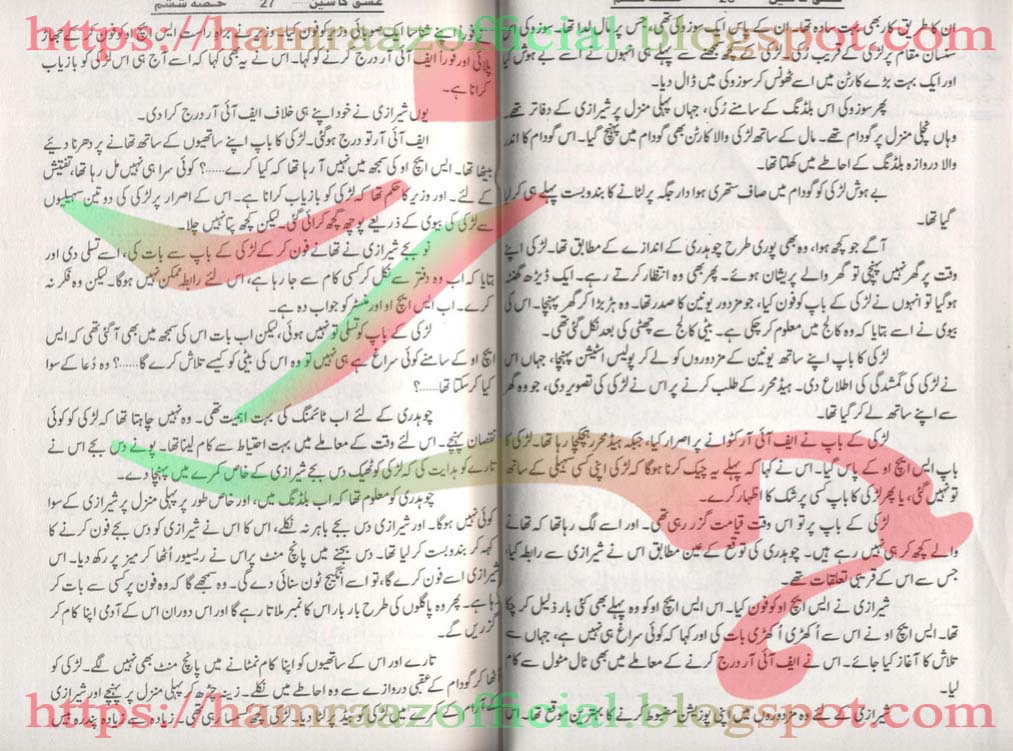 https://hamraazofficial.blogspot.com
ان کا طریق کار بھی بہت سادہ تھا۔ ان کے پاس ایک سوزوکی تھی، جس پر مال لدا تھا۔ سوزوکی اس
سنسان مقام پر لڑکی کے قریب رکی۔ لڑکی کے کچھ سمجھنے سے پہلے ہی انہوں نے اسے بے ہوش کیا
اور ایک بہت بڑے کارٹن میں اسے ٹھونس کر سوزوکی میں ڈال دیا۔
پھر سوزوکی اس بلڈنگ کے سامنے رُکی، جہاں پہلی منزل پر شیرازی کے دفاتر تھے۔
وہاں نچلی منزل پر گودام تھے۔ مال کے ساتھ لڑکی والا کارٹن بھی گودام میں پہنچ گیا۔ اس گودام کا اندر
والا دروازہ بلڈنگ کے احاطے میں کھلتا تھا۔
بے ہوش لڑکی کو گودام میں صاف ستھری ہوا دار جگہ پر لٹانے کا بندوبست پہلے ہی کر لیا
گیا تھا۔
آگے جو کچھ ہوا، وہ بھی پوری طرح چوہدری کے اندازے کے مطابق تھا۔ لڑکی اپنے
وقت پر گھر نہیں پہنچی تو گھر والے پریشان ہوئے۔ پھر بھی وہ انتظار کرتے رہے۔ ایک ڈیڑھ گھنٹہ
ہو گیا تو انہوں نے لڑکی کے باپ کو فون کیا، جو مزدور یونین کا صدر تھا۔ وہ ہڑبڑا کر گھر پہنچا۔ اس کی
بیوی نے اسے بتایا کہ وہ کالج میں معلوم کر چکی ہے۔ بیٹی کالج سے چھٹی کے بعد نکل گئی تھی۔
لڑکی کا باپ اپنے ساتھ یونین کے مزدوروں کو لے کر پولیس اسٹیشن پہنچا، جہاں اس
نے لڑکی کی گمشدگی کی اطلاع دی۔ ہیڈ محرر کے طلب کرنے پر اس نے لڑکی کی تصویر دی، جو وہ گھر
سے اپنے ساتھ لے کر گیا تھا۔
لڑکی کے باپ نے ایف آئی آر کٹوانے پر اصرار کیا، جبکہ ہیڈ محرر ہچکچا رہا تھا۔ لڑکی کا
باپ ایس ایچ او کے پاس گیا۔ اس نے کہا کہ پہلے یہ چیک کرنا ہوگا کہ لڑکی اپنی کسی سہیلی کے ساتھ
تو نہیں گئی، یا پھر لڑکی کا باپ کسی پر شک کا اظہار کرے۔
لڑکی کے باپ پر تو اس وقت قیامت گزر رہی تھی۔ اور اسے لگ رہا تھا کہ تھانے
والے کچھ کر ہی نہیں رہے ہیں۔ چوہدری کی توقع کے عین مطابق اس نے شیرازی سے رابطہ کیا،
جس سے اس کے قریبی تعلقات تھے۔
شیرازی نے ایس ایچ او کو فون کیا۔ اس ایس ایچ او کو وہ پہلے بھی کئی بار ذلیل کر چکا
تھا۔ ایس ایچ او نے اس سے اُکھڑی اُکھڑی بات کی اور کہا کہ کوئی سراغ ہی نہیں ہے، جہاں سے
تلاش کا آغاز کیا جائے۔ اس نے ایف آئی آر درج کرنے کے معاملے میں بھی ٹال مٹول سے کام
لیا۔
شیرازی کے لئے وہ مزدوروں میں اپنی پوزیشن مضبوط کرنے کا بہترین موقع تھا۔ اس
عشق کا شین 27 حصہ ششم
نے فوراً اپنے شناسا ایک صوبائی وزیر کو فون کیا۔ وزیر نے براہ راست ایس ایچ او کو فون کر کے جھاڑ
پلائی اور فوراً ایف آئی آر درج کرنے کو کہا۔ اس نے یہ بھی کہا کہ اسے آج ہی اس لڑکی کو بازیاب
کرانا ہے۔
یوں شیرازی نے خود اپنے ہی خلاف ایف آئی آر درج کرا دی۔
ایف آئی آر تو درج ہوگئی۔ لڑکی کا باپ اپنے ساتھیوں کے ساتھ تھانے پر دھرنا دیئے
بیٹھا تھا۔ ایس ایچ او کی سمجھ میں نہیں آ رہا تھا کہ کیا کرے......؟ کوئی سرا ہی نہیں مل رہا تھا، تفتیش
کے لئے۔ اور وزیر کا حکم تھا کہ لڑکی کو بازیاب کرانا ہے۔ اس کے اصرار پر لڑکی کی دو تین سہیلیوں
سے لڑکی کی بیوی کے ذریعے پوچھ گچھ کرائی گئی۔ لیکن کچھ پتا نہیں چلا۔
نو بجے شیرازی نے تھانے فون کر کے لڑکی کے باپ سے بات کی، اسے تسلی دی اور
بتایا کہ اب وہ دفتر سے نکل کر کسی کام سے جا رہا ہے، اس لئے رابطہ ممکن نہیں ہوگا۔ لیکن وہ فکر نہ
کرے۔ اب ایس ایچ او اور منسٹر کو جواب دہ ہے۔
لڑکی کے باپ کو تسلی تو نہیں ہوئی، لیکن اب بات اس کی سمجھ میں بھی آ گئی تھی کہ ایس
ایچ او کے سامنے کوئی سراغ ہے ہی نہیں تو وہ اس کی بیٹی کو کیسے تلاش کرے گا......؟ وہ دُعا کے سوا
کیا کر سکتا تھا......؟
چوہدری کے لئے اب ٹائمنگ کی بہت اہمیت تھی۔ وہ نہیں چاہتا تھا کہ لڑکی کو کوئی
نقصان پہنچے۔ اس لئے وقت کے معاملے میں بہت احتیاط سے کام لینا تھا۔ پونے دس بجے اس نے
تارے کو ہدایت کی کہ لڑکی کو ٹھیک دس بجے شیرازی کے خاص کمرے میں پہنچا دے۔
چوہدری کو معلوم تھا کہ اب بلڈنگ میں، اور خاص طور پر پہلی منزل پر شیرازی کے سوا
کوئی نہیں ہوگا۔ اور شیرازی دس بجے باہر نہ نکلے، اس کا اس نے شیرازی کو دس بجے فون کرنے کا
کہہ کر بندوبست کر لیا تھا۔ دس بجنے میں پانچ منٹ پر اس نے ریسیور اُٹھا کر میز پر رکھ دیا۔ اس
شیرازی اسے فون کرے گا، تو اسے انگیج ٹون سنائی دے گی۔ وہ سمجھے گا کہ وہ فون پر کسی سے بات کر
رہا ہے۔ پھر وہ پاگلوں کی طرح بار بار اس کا نمبر ملاتا رہے گا اور اس دوران اس کے آدمی اپنا کام کر
گزریں گے۔
تارے اور اس کے ساتھیوں کو اپنا کام نمٹانے میں پانچ منٹ بھی نہیں لگے۔ لڑکی کو
اُٹھا کر گودام کے عقبی دروازے سے وہ احاطے میں نکلے۔ زینہ چڑھ کر پہلی منزل پر پہنچے اور شیرازی
کے کمرے میں لڑکی کو بیڈ پر لٹا دیا۔ لڑکی کچھ کسمسا رہی تھی۔ زیادہ سے زیادہ پندرہ بیس
https://hamraazofficial.blogspot.com